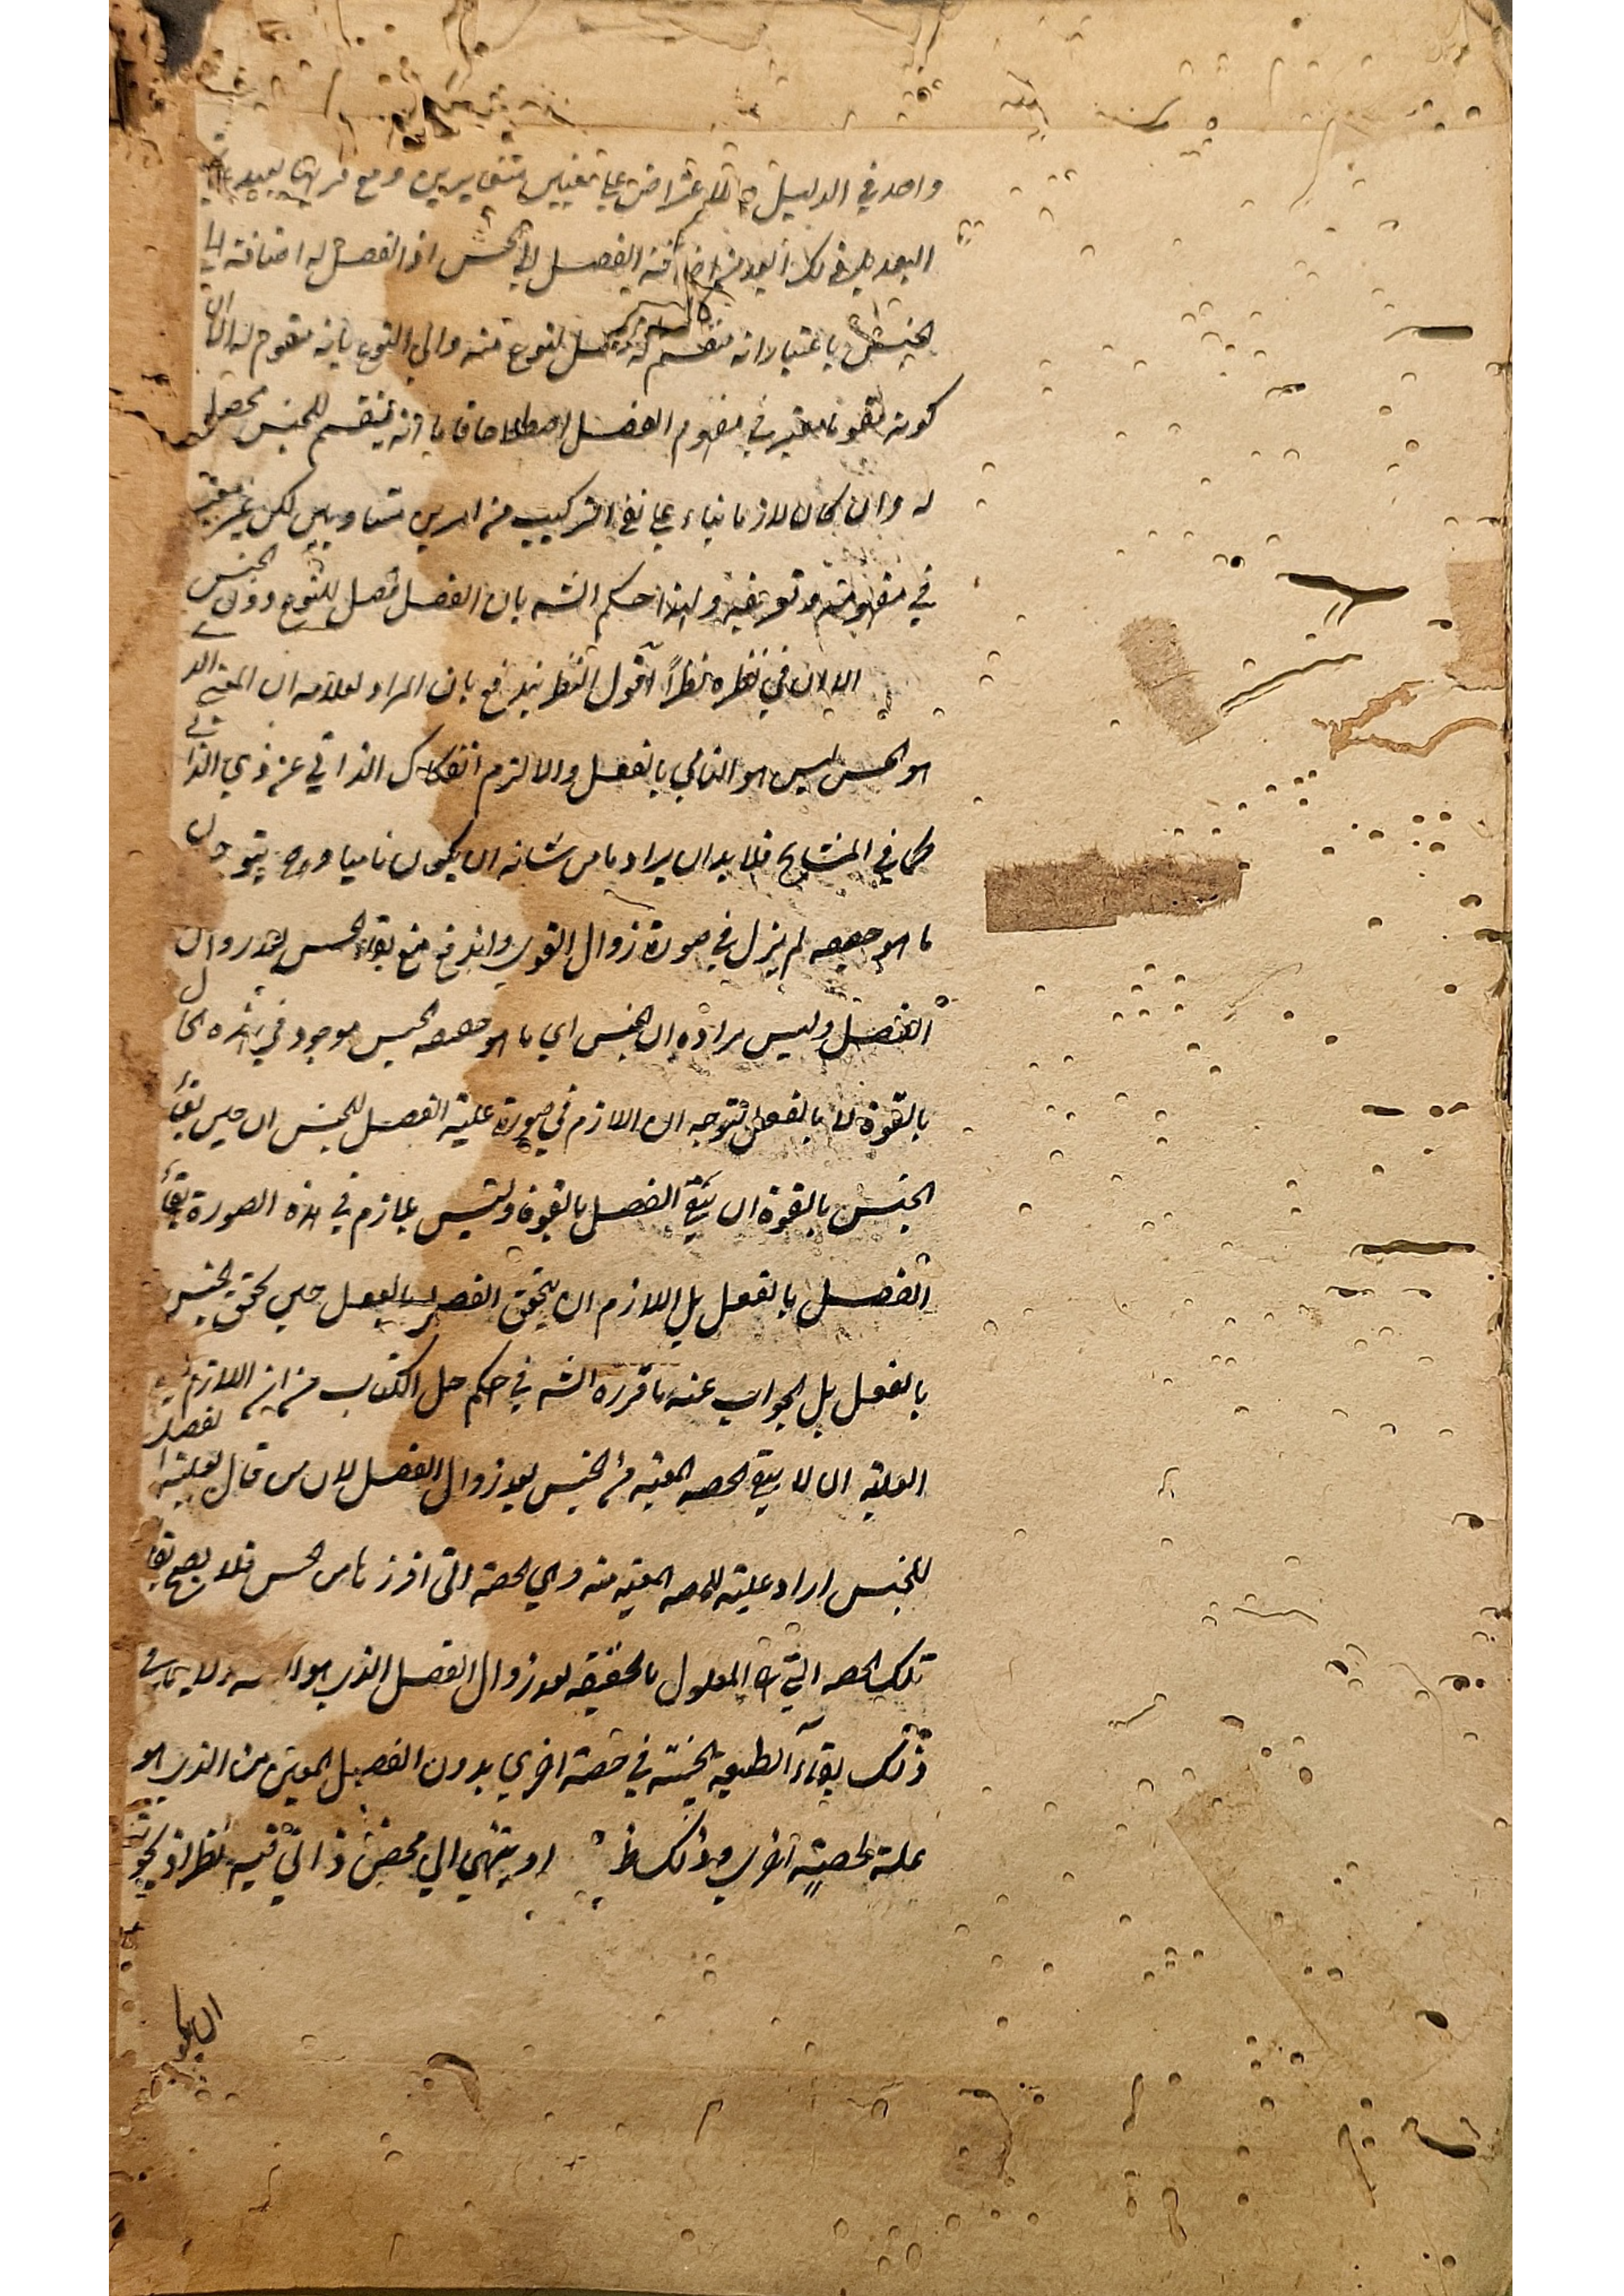 واحد في الدليل و الاعتراض على معنيين متغايرين ومع قربها بعيد
البعد بل في ذلك ابعد من اضافة الفصل الى الجنس اذ الفصل له اضافة الى
الجنس باعتبار انه مقسم له محصل لنوع منه والى النوع بانه مقوم له الا ان
كونه مقوما معتبر في مفهوم الفصل اصطلاحا فانه ينقسم للجنس محصل
له وان كان لازما بناء على نفي التركيب من امرين متساويين لكن غير معتبر
في مفهومه وتعريفه ولهذا حكم الشه بان الفصل فصل للنوع دون الجنس
الا ان في نظره نظراً اقول النظر يندفع بان المراد لعلامه ان المعنى الذ
هو الجنس ليس هو النامي بالفعل والا لزم انفكاك الذاتي عن ذي الذاتي
كما في المشايخ فلا بد ان يراد ما من شانه ان يكون ناميا وح يتوجه ان
ما هو حصصه لم يزل في صورة زوال القوى واندفع منع بقاء الجنس بعد زوال
الفصل وليس مراده ان الجنس اي ما هو حصصه الجنس موجود في هذه الحال
بالقوة لا بالفعل فتوجه ان اللازم في صورة علية الفصل للجنس ان حين بقاء
الجنس بالقوة ان يبقى الفصل بالقوة وليس بلازم في هذه الصورة بقاء
الفصل بالفعل بل اللازم ان يتحقق الفصل بالفعل حين تحقق الجنس
بالفعل بل الجواب عنه ما قرره الشه في حكم حل الكتاب من ان اللازم
العلية ان لا يبقى الحصه المعينه من الجنس بعد زوال الفصل لان من قال بعلية الفصل
للجنس اراد علية للحصه المعينه منه وهي الحصة التي افرزها من الجنس فلا يصح بقاء
تلك الحصه التي هي المعلول بالحقيقه بعد زوال الفصل الذي هو ولا ينافي
ذلك بقاء الطبيعه الجنسيه في حصة اخرى بدون الفصل المعين من الذي هو
علة لحصة اخرى وذلك ظ او ينتهي الى محض ذاتي فيه نظر اذ يجوز
ان يكون